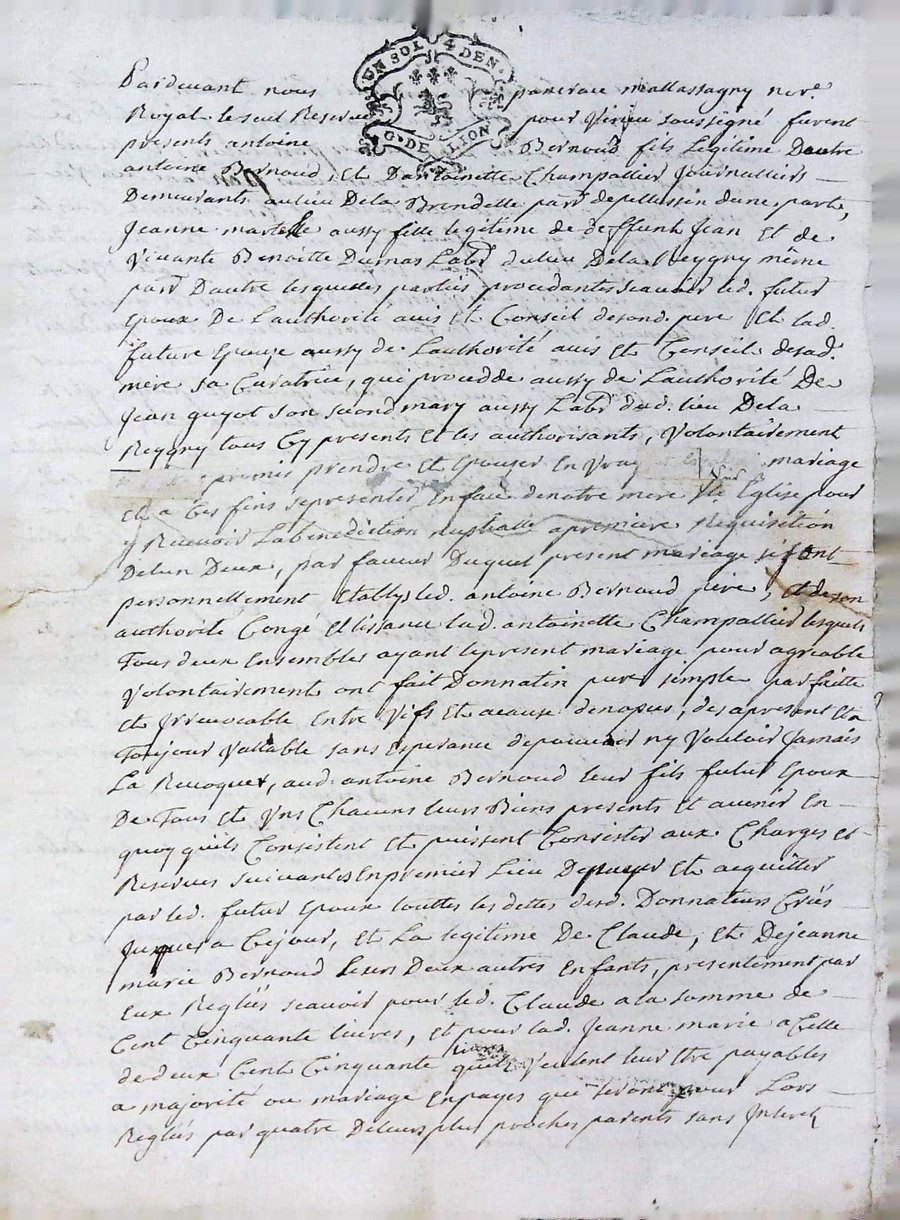 UN SOL 4 DEN.
G. DE LION
Pardevant nous pancrace mallassagny nore.
Royal le seul Reservé pour Virieu soussigné furent
presents antoine Bernoud fils Legitime Dautre
antoine Bernoud, Et Dantoinette Champallier Journalliers
Demeurants aulieu Dela Brendelle parr. depellussin dune part,
Jeanne martelle aussy fille legitime de deffunt Jean Et de
Vivante Benoitte Dumas Labr. dulieu Dela Reygny même
parr. Dautre lesquelles parties procedantes scavoir led. futur
Epoux De Lauthorité avis Et Conseil desond. pere Et lad.
future Epouse aussy de Lauthorité avis Et Conseil desad.
mère sa Curatrice, qui procedde aussy de Lauthorité De
Jean guyot son second mary aussy Labr. dud. lieu Dela
Reygny tous Cy presents Et les authorisants, Volontairement
promis prendre et Epouser En Vray mariage
Et a Ces fins se representer En face denotre mere Ste Eglise pour
y Recevoir Labenediction nuptialle apremiere Requisition
Delun Deux, par faveur Duquel present mariage se sont
personnellement Etablys led. antoine Bernoud père, Et deson
authorité Congé Et lissance lad. antoinette Champallier lesquels
Tous deux Ensembles ayant lepresent mariage pour agreable
Volontairement ont fait Donnatin pure simple parfaitte
Et Irrevocable Entre Vifs Et acause denopces, des apresent Et a
Toujour Vallable sans Esperance depouvoir ny Vouloir Jamais
La Revoquer, aud. antoine Bernoud leur fils futur Epoux
De Tous Et Uns Chacuns leurs Biens presents Et avenir En
quoy quils Consistent Et puissent Consister aux Charges et
Reserves suivantes Enpremier Lieu Depayer Et acquitter
par led. futur Epoux touttes les dettes desd. Donnateurs Crées
Jusques a Cejour, Et La legitime De Claude, Et Dejeanne
marie Bernoud leurs Deux autres Enfants, presentement par
Eux Reglés scavoir pour led. Claude a la somme de
Cent Cinquante livres, Et pour lad. Jeanne marie a Celle
de deux Cent Cinquante livres quils Veulent leur Etre payables
a majorité ou mariage Enpayes que seront pour Lors
Reglés par quatre Deleurs plus proches parents sans Interets